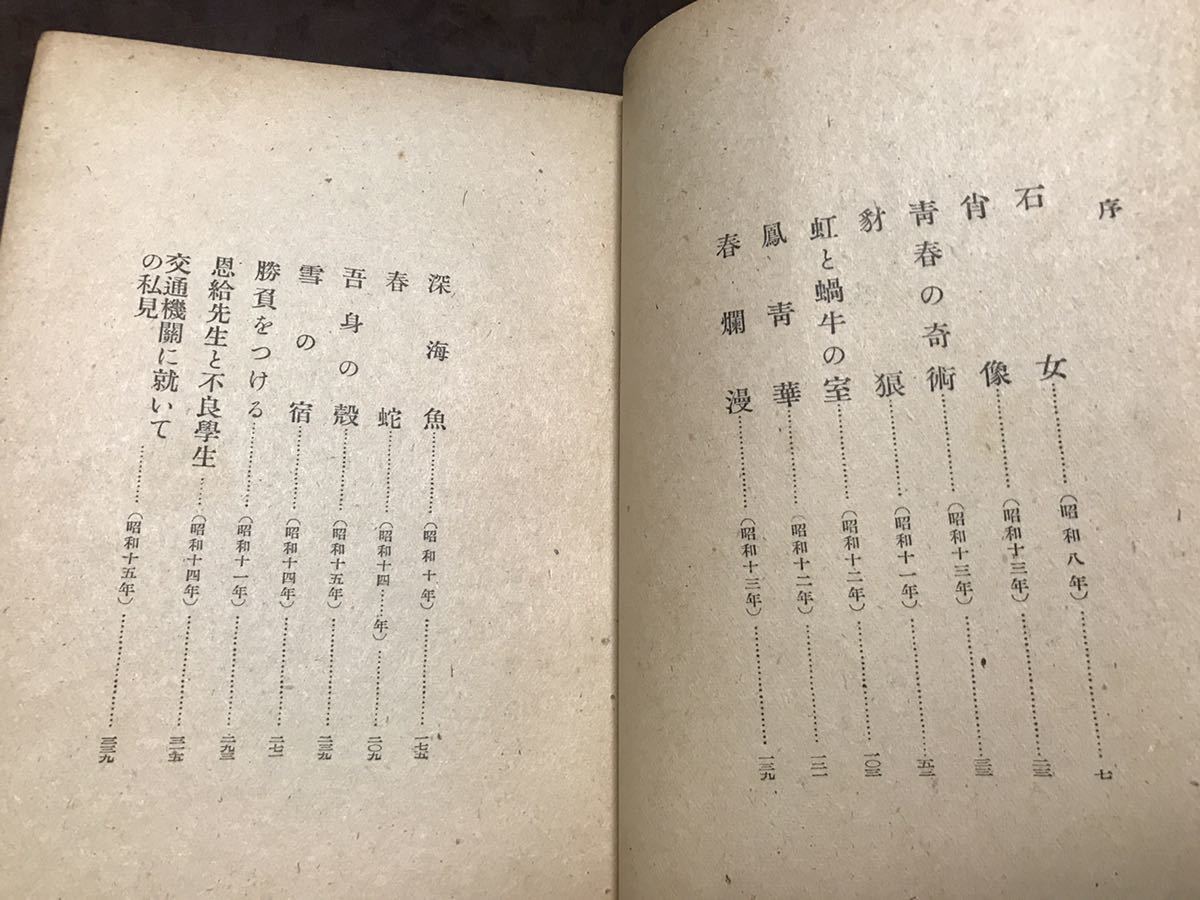 序
石女…………(昭和八年)…………七
肖像…………(昭和十三年)…………二三
靑春の奇術…………(昭和十三年)…………三三
豺狼…………(昭和十一年)…………五三
虹と蝸牛の室…………(昭和十二年)…………一〇三
鳳靑華…………(昭和十二年)…………一二一
春爛漫…………(昭和十三年)…………一三九
深海魚…………(昭和十年)…………一七五
春蛇…………(昭和十四……年)…………二〇九
吾身の殻…………(昭和十五年)…………二三九
雪の宿…………(昭和十四年)…………二七一
勝負をつける…………(昭和十一年)…………二九三
恩給先生と不良學生……(昭和十四年)…………三一五
交通機關に就いて
の私見…………(昭和十五年)…………三三九